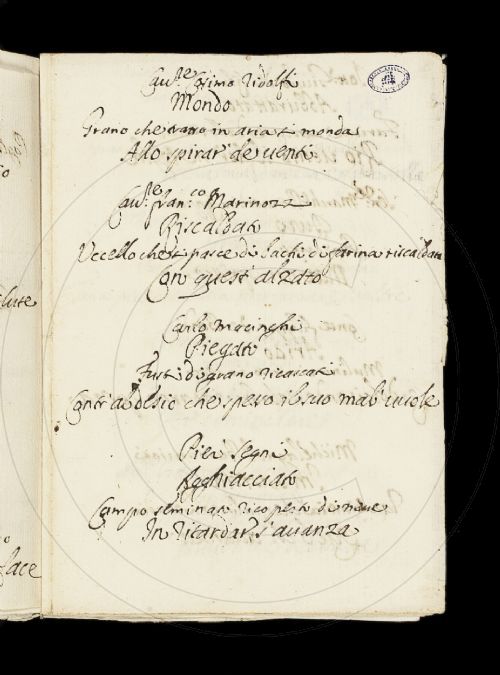 Cau.re Cosimo Ridolfi
Mondo
Grano che tratto in aria si monda
Allo spirar' de uenti
Cau.re fran.co Marinozzi
Riscaldato
Uccello che si pasce di bachi di farina riscaldata
Con quest' alzato
Carlo Macinghi
Piegato
Fusti di grano ricascati
Contr' al desio che pero il suo mal' uuole
Pier Segni
Agghiacciato
Campo seminato ricoperto di neue
In ritardar s'auanza
lute
face